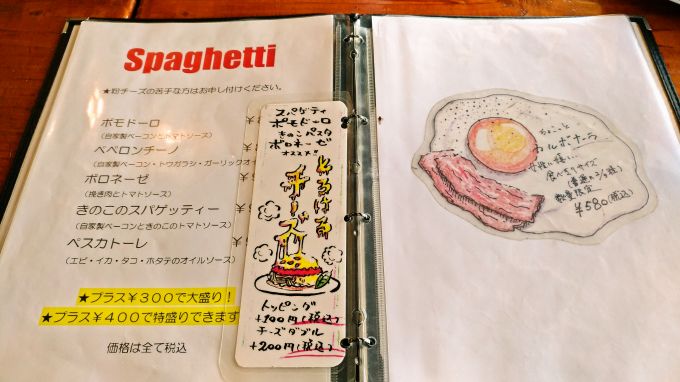 Spaghetti
★粉チーズの苦手な方はお申し付けください。
ポモドーロ
(自家製ベーコンとトマトソース)
ペペロンチーノ
(自家製ベーコン・トウガラシ・ガーリックオイ
ボロネーゼ
(挽き肉とトマトソース)
きのこのスパゲッティー
(自家製ベーコンときのこのトマトソース)
ペスカトーレ
(エビ・イカ・タコ・ホタテのオイルソース)
★プラス¥300で大盛り!
★プラス¥400で特盛りできます
価格は全て税込
スパゲティ
ポモドーロ
きのこパスタ
ボロネーゼ
オススメ!!
とろける
チーズ
トッピング
+100円(税込)
チーズダブル
+200円(税込)
ちょこっと
カルボナーラ
食べきりサイズ
数量限定
¥580(税込)